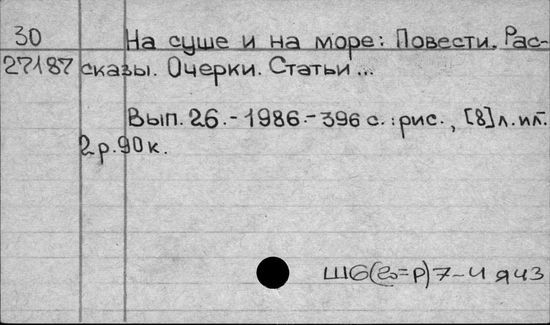 30
27187
На суше и на море: Повести. Рас-
сказы. Очерки. Статьи...
Вып. 26. - 1986. - 396 с. : рис., [8] л. ил.
2р. 90 к.
Ш6( =Р)7-4 я43